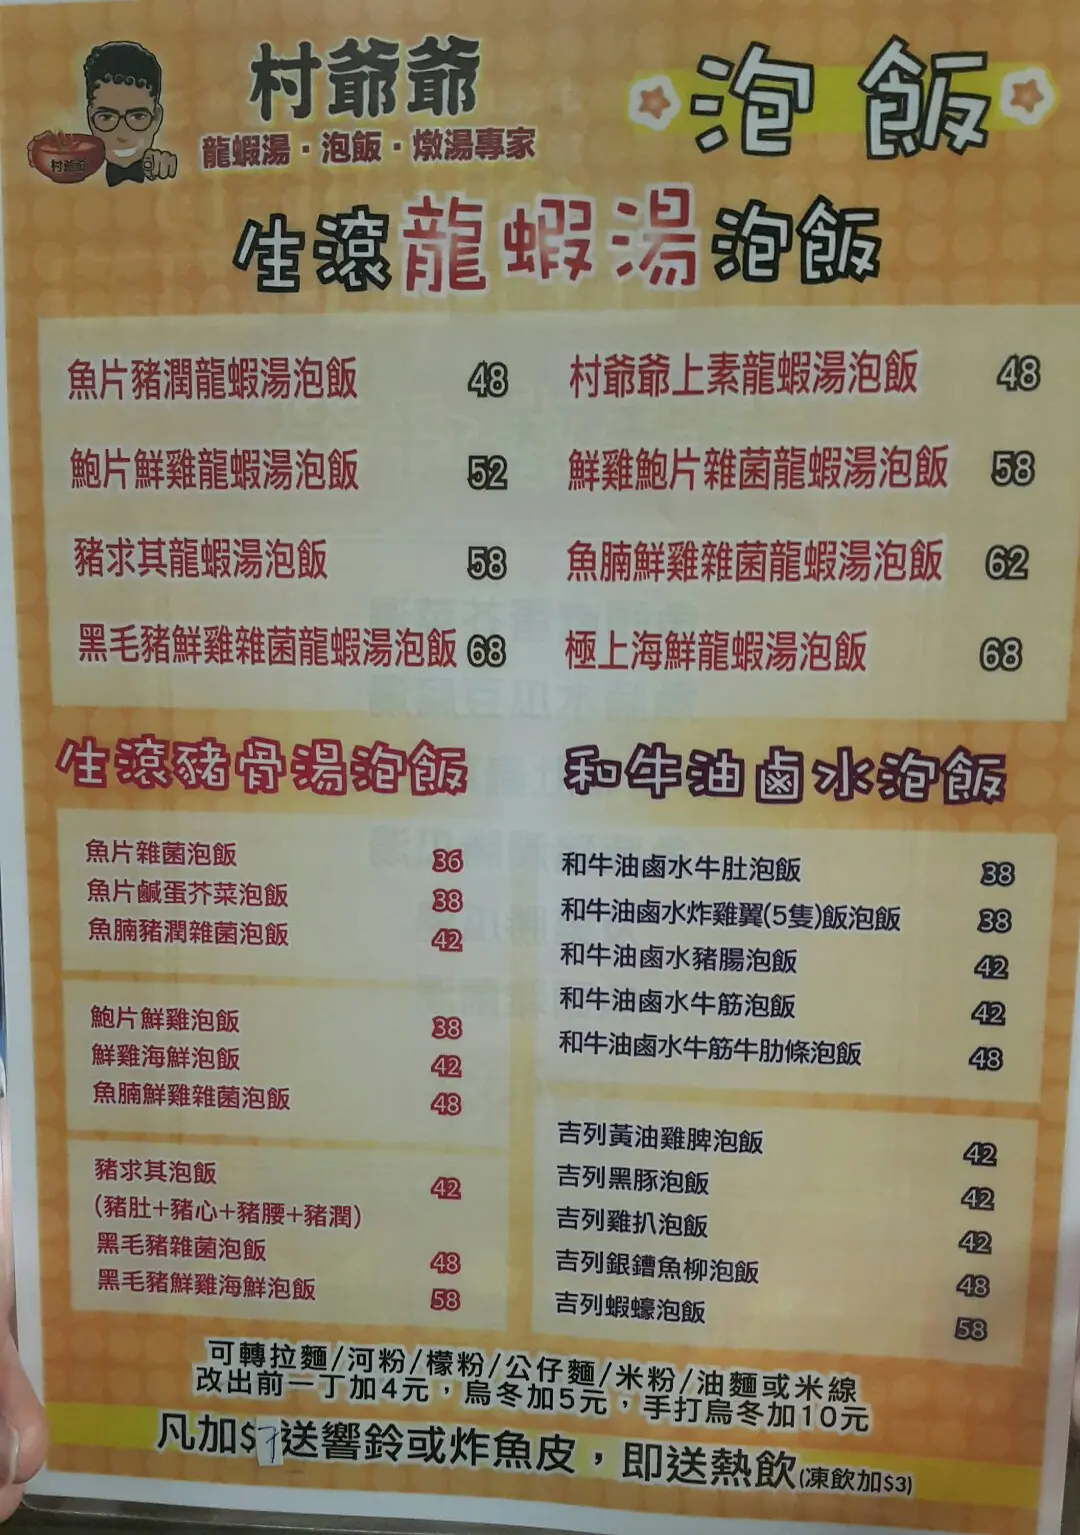 村爺爺
龍蝦湯・泡飯・燉湯專家
村爺爺
泡飯
生滾龍蝦湯泡飯
魚片豬潤龍蝦湯泡飯 48
鮑片鮮雞龍蝦湯泡飯 52
豬求其龍蝦湯泡飯 58
黑毛豬鮮雞雜菌龍蝦湯泡飯 68
村爺爺上素龍蝦湯泡飯 48
鮮雞鮑片雜菌龍蝦湯泡飯 58
魚腩鮮雞雜菌龍蝦湯泡飯 62
極上海鮮龍蝦湯泡飯 68
生滾豬骨湯泡飯
魚片雜菌泡飯 36
魚片鹹蛋芥菜泡飯 38
魚腩豬潤雜菌泡飯 42
鮑片鮮雞泡飯 38
鮮雞海鮮泡飯 42
魚腩鮮雞雜菌泡飯 48
豬求其泡飯 42
(豬肚+豬心+豬腰+豬潤)
黑毛豬雜菌泡飯 48
黑毛豬鮮雞海鮮泡飯 58
和牛油鹵水泡飯
和牛油鹵水牛肚泡飯 38
和牛油鹵水炸雞翼(5隻)飯泡飯 38
和牛油鹵水豬腸泡飯 42
和牛油鹵水牛筋泡飯 42
和牛油鹵水牛筋牛肋條泡飯 48
吉列黃油雞脾泡飯 42
吉列黑豚泡飯 42
吉列雞扒泡飯 42
吉列銀鱈魚柳泡飯 48
吉列蝦蠔泡飯 58
可轉拉麵/河粉/檬粉/公仔麵/米粉/油麵或米線
改出前一丁加4元，烏冬加5元，手打烏冬加10元
凡加$7送響鈴或炸魚皮，即送熱飲(凍飲加$3)